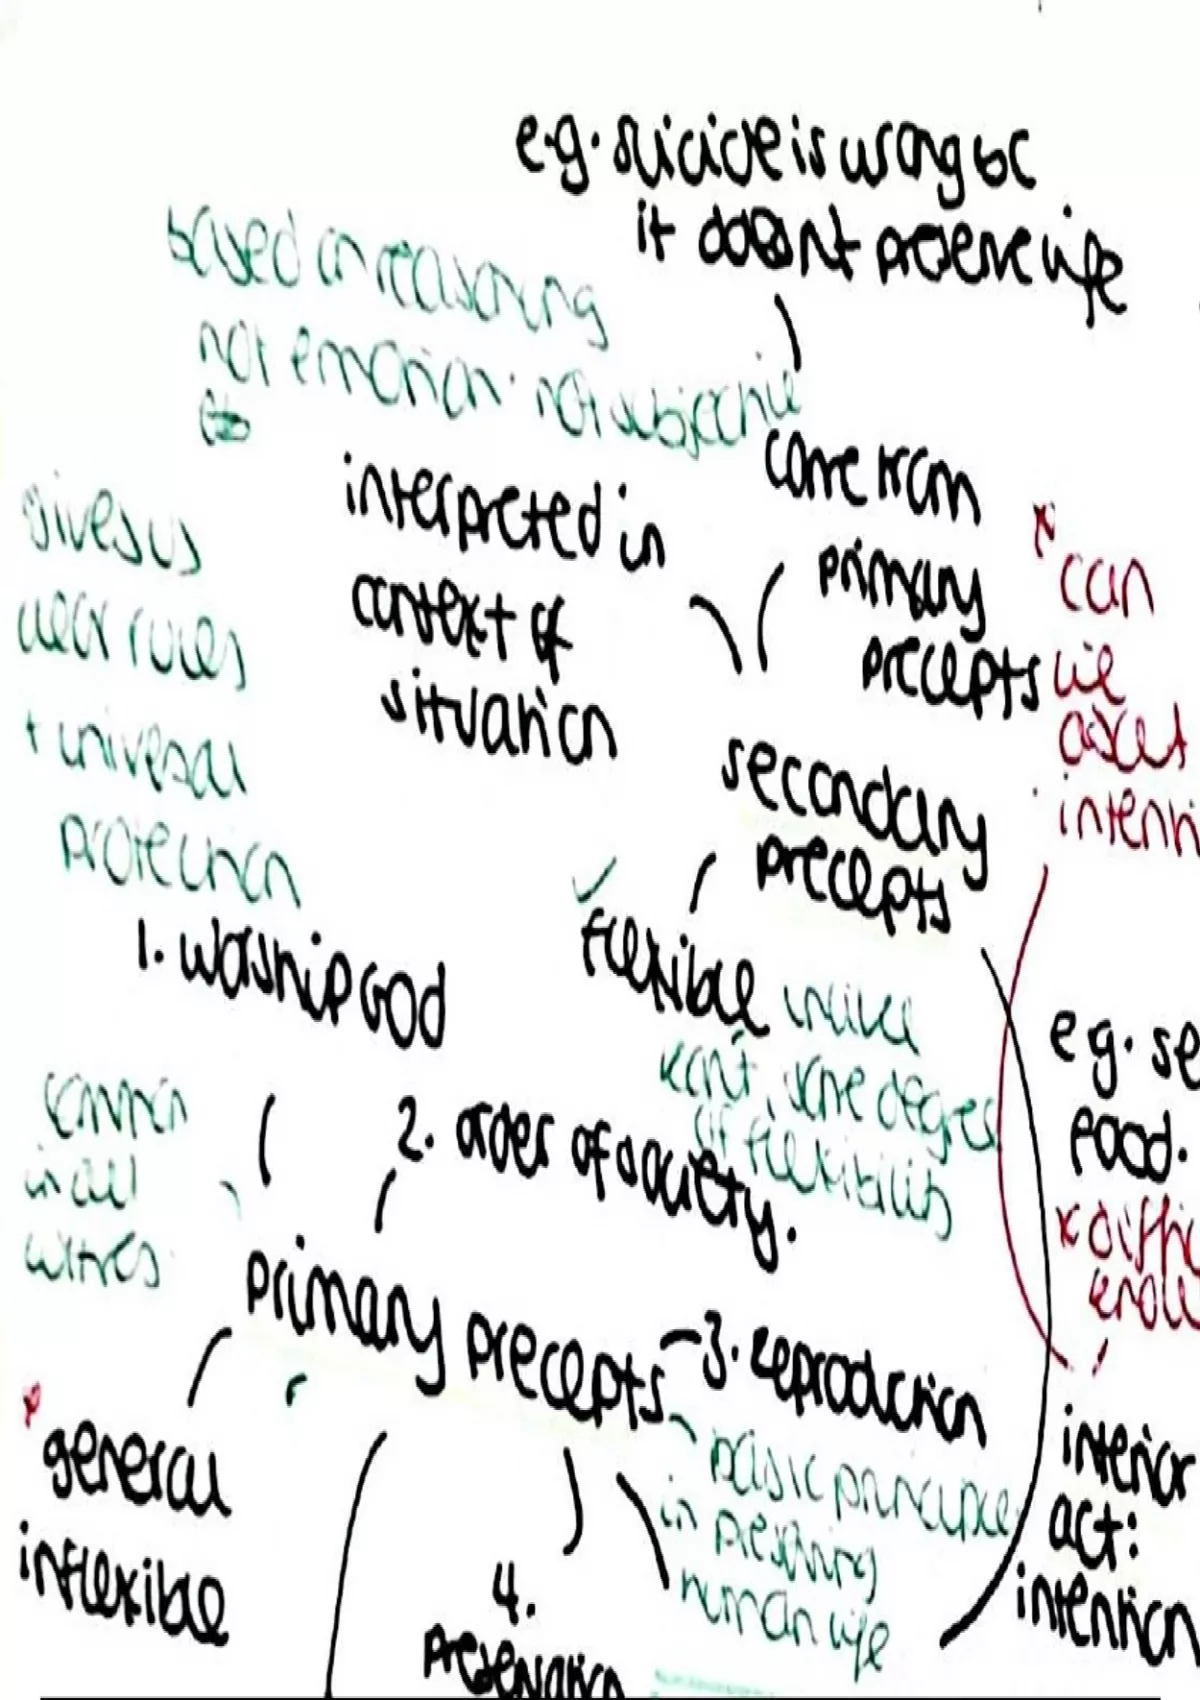 e.g. suicide is wrong bc
it doesnt preserve life
based on reasoning
not emotion not subjective
come from
primary
precepts
interpreted in
context of
situation
gives us
clear rules
+ universal
protection
x can
we
intenti
secondary
precepts
✓ flexible unlike
kant, some degree
of flexibility
1. worship God
2. order of society.
e.g. se
food.
x diffic
common
in all
primary precepts
3. reproduction
x general
inflexible
basic principle
in preserving
human life
interior
act:
intention
4.
preservation